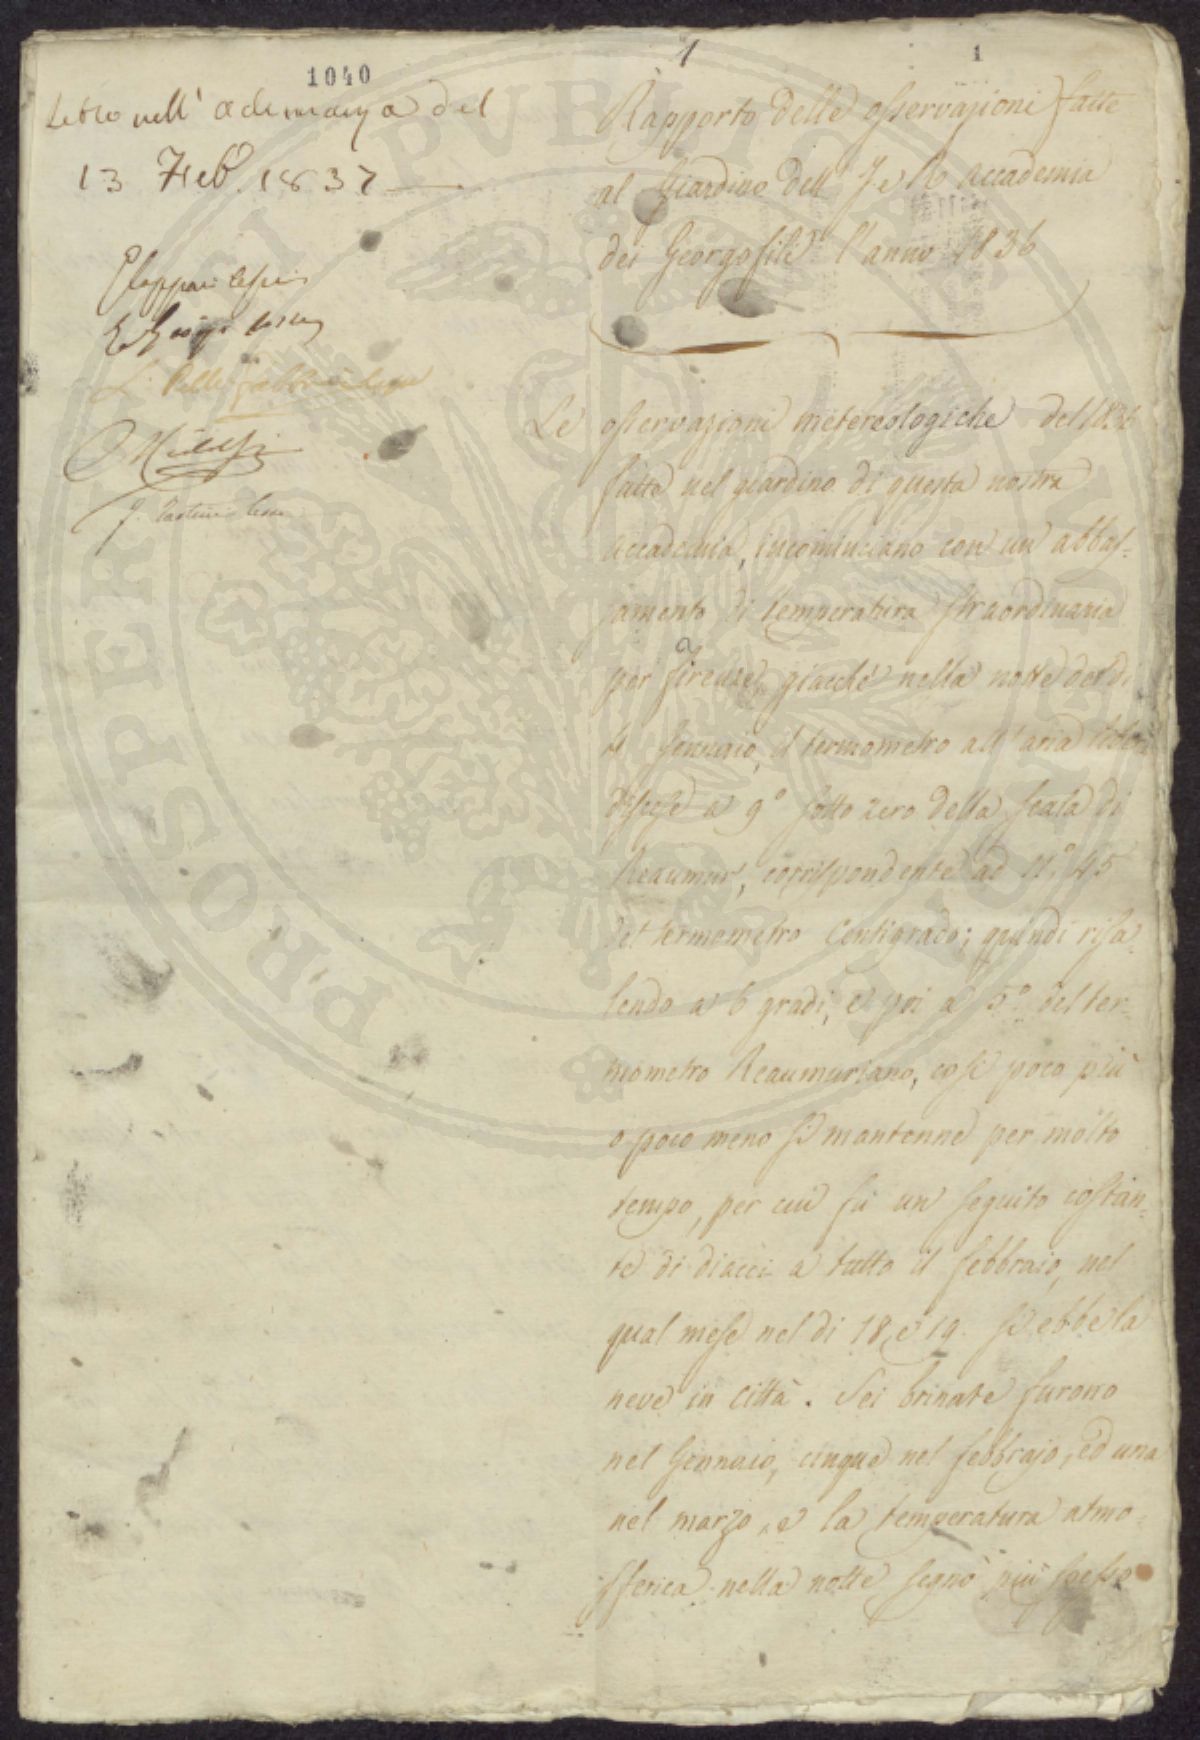 1040
1
1
Letto nell' adunanza del
13 Feb.o 1837
Rapporto delle osservazioni fatte
al Giardino dell' I e R accademia
dei Georgofili l'anno 1836
Le osservazioni metereologiche del 1836
fatte nel giardino di questa nostra
accademia, incominciano con un abbas-
samento di temperatura straordinaria
per Firenze, giacchè nella notte del dì
Gennaio, il termometro all'aria libera
discese a 9° sotto zero della scala di
Reaumur, corrispondente ad 11.° 45
del termometro Centigrado; quindi risa-
lendo a 6 gradi, e poi a 5° del ter-
mometro Reaumuriano, così poco più
o poco meno si mantenne per molto
tempo, per cui fu un seguito costan-
te di diacci a tutto il febbraio, nel
qual mese nel dì 18, e 19. si ebbe la
neve in città. Sei brinate furono
nel Gennaio, cinque nel febbrajo, ed una
nel marzo, e la temperatura atmo-
sferica nella notte segnò più spesso
PROSPERITATI PUBLICAE AUGENDAE